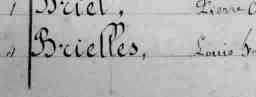 1 Briel, Pierre
4 Brielles, Louis